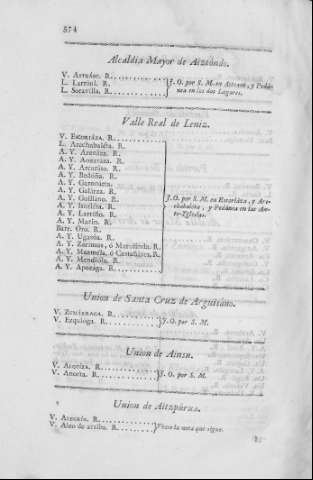 574
Alcaldía Mayor de Aiztóndo.
V. Asteásu. R.
L. Larraul. R.
L. Soravilla. R.
J. O. por S. M. en Asteasu, y Pedá-
nea en los dos Lugares.
Valle Real de Leniz.
V. Escoriáza. R.
L. Arechabaléta. R.
A. Y. Arenáza. R.
A. Y. Aozaráza. R.
A. Y. Arcaráso. R.
A. Y. Bedoña. R.
A. Y. Garagárza.
A. Y. Galárza. R.
A. Y. Goiliano. R.
A. Y. Isurieta. R.
A. Y. Larriño. R.
A. Y. Marin. R.
Barr. Oro. R.
A. Y. Ugarón. R.
A. Y. Zarimuz, ó Marulánda. R.
A. Y. Mazméla, ó Castañares. R.
A. Y. Mendióla. R.
A. Y. Apozága. R.
J. O. por S. M. en Escoriáza, y Are-
chabaléta, y Pedánea en las An-
te-Yglesias.
Union de Santa Cruz de Arguisáno.
V. Zumárraga. R.
V. Ezquioga. R.
J. O. por S. M.
Union de Ainsu.
V. Arería. R.
V. Anoeta. R.
J. O. por S. M.
Union de Aitzpúrua.
V. Atacaín. R.
V. Alzo de arriba. R.
Véase la nota que sigue.